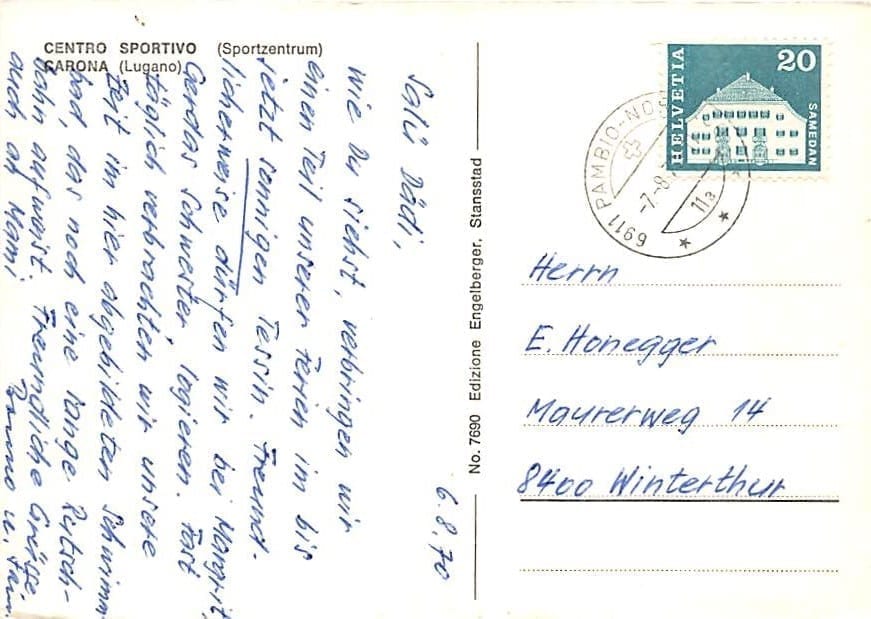 CENTRO SPORTIVO (Sportzentrum)
CARONA (Lugano)
6.8.70
Salü Dädi,
wie Du siehst, verbringen wir
einen Teil unserer Ferien im bis
jetzt sonnigen Tessin. Freund-
licherweise dürfen wir bei Margrit,
Gerdas Schwester, logieren. Fast
täglich verbrachten wir unsere
Zeit im hier abgebildeten Schwimm-
bad, das noch eine lange Rutsch-
bahn aufweist. Freundliche Grüsse,
auch an Mami
Bruno u. Fam.
No. 7690 Edizione Engelberger, Stansstad
HELVETIA
20
SAMEDAN
6911 PAMBIO-NO
-7.-8.
11a
Herrn
E. Honegger
Maurerweg 14
8400 Winterthur